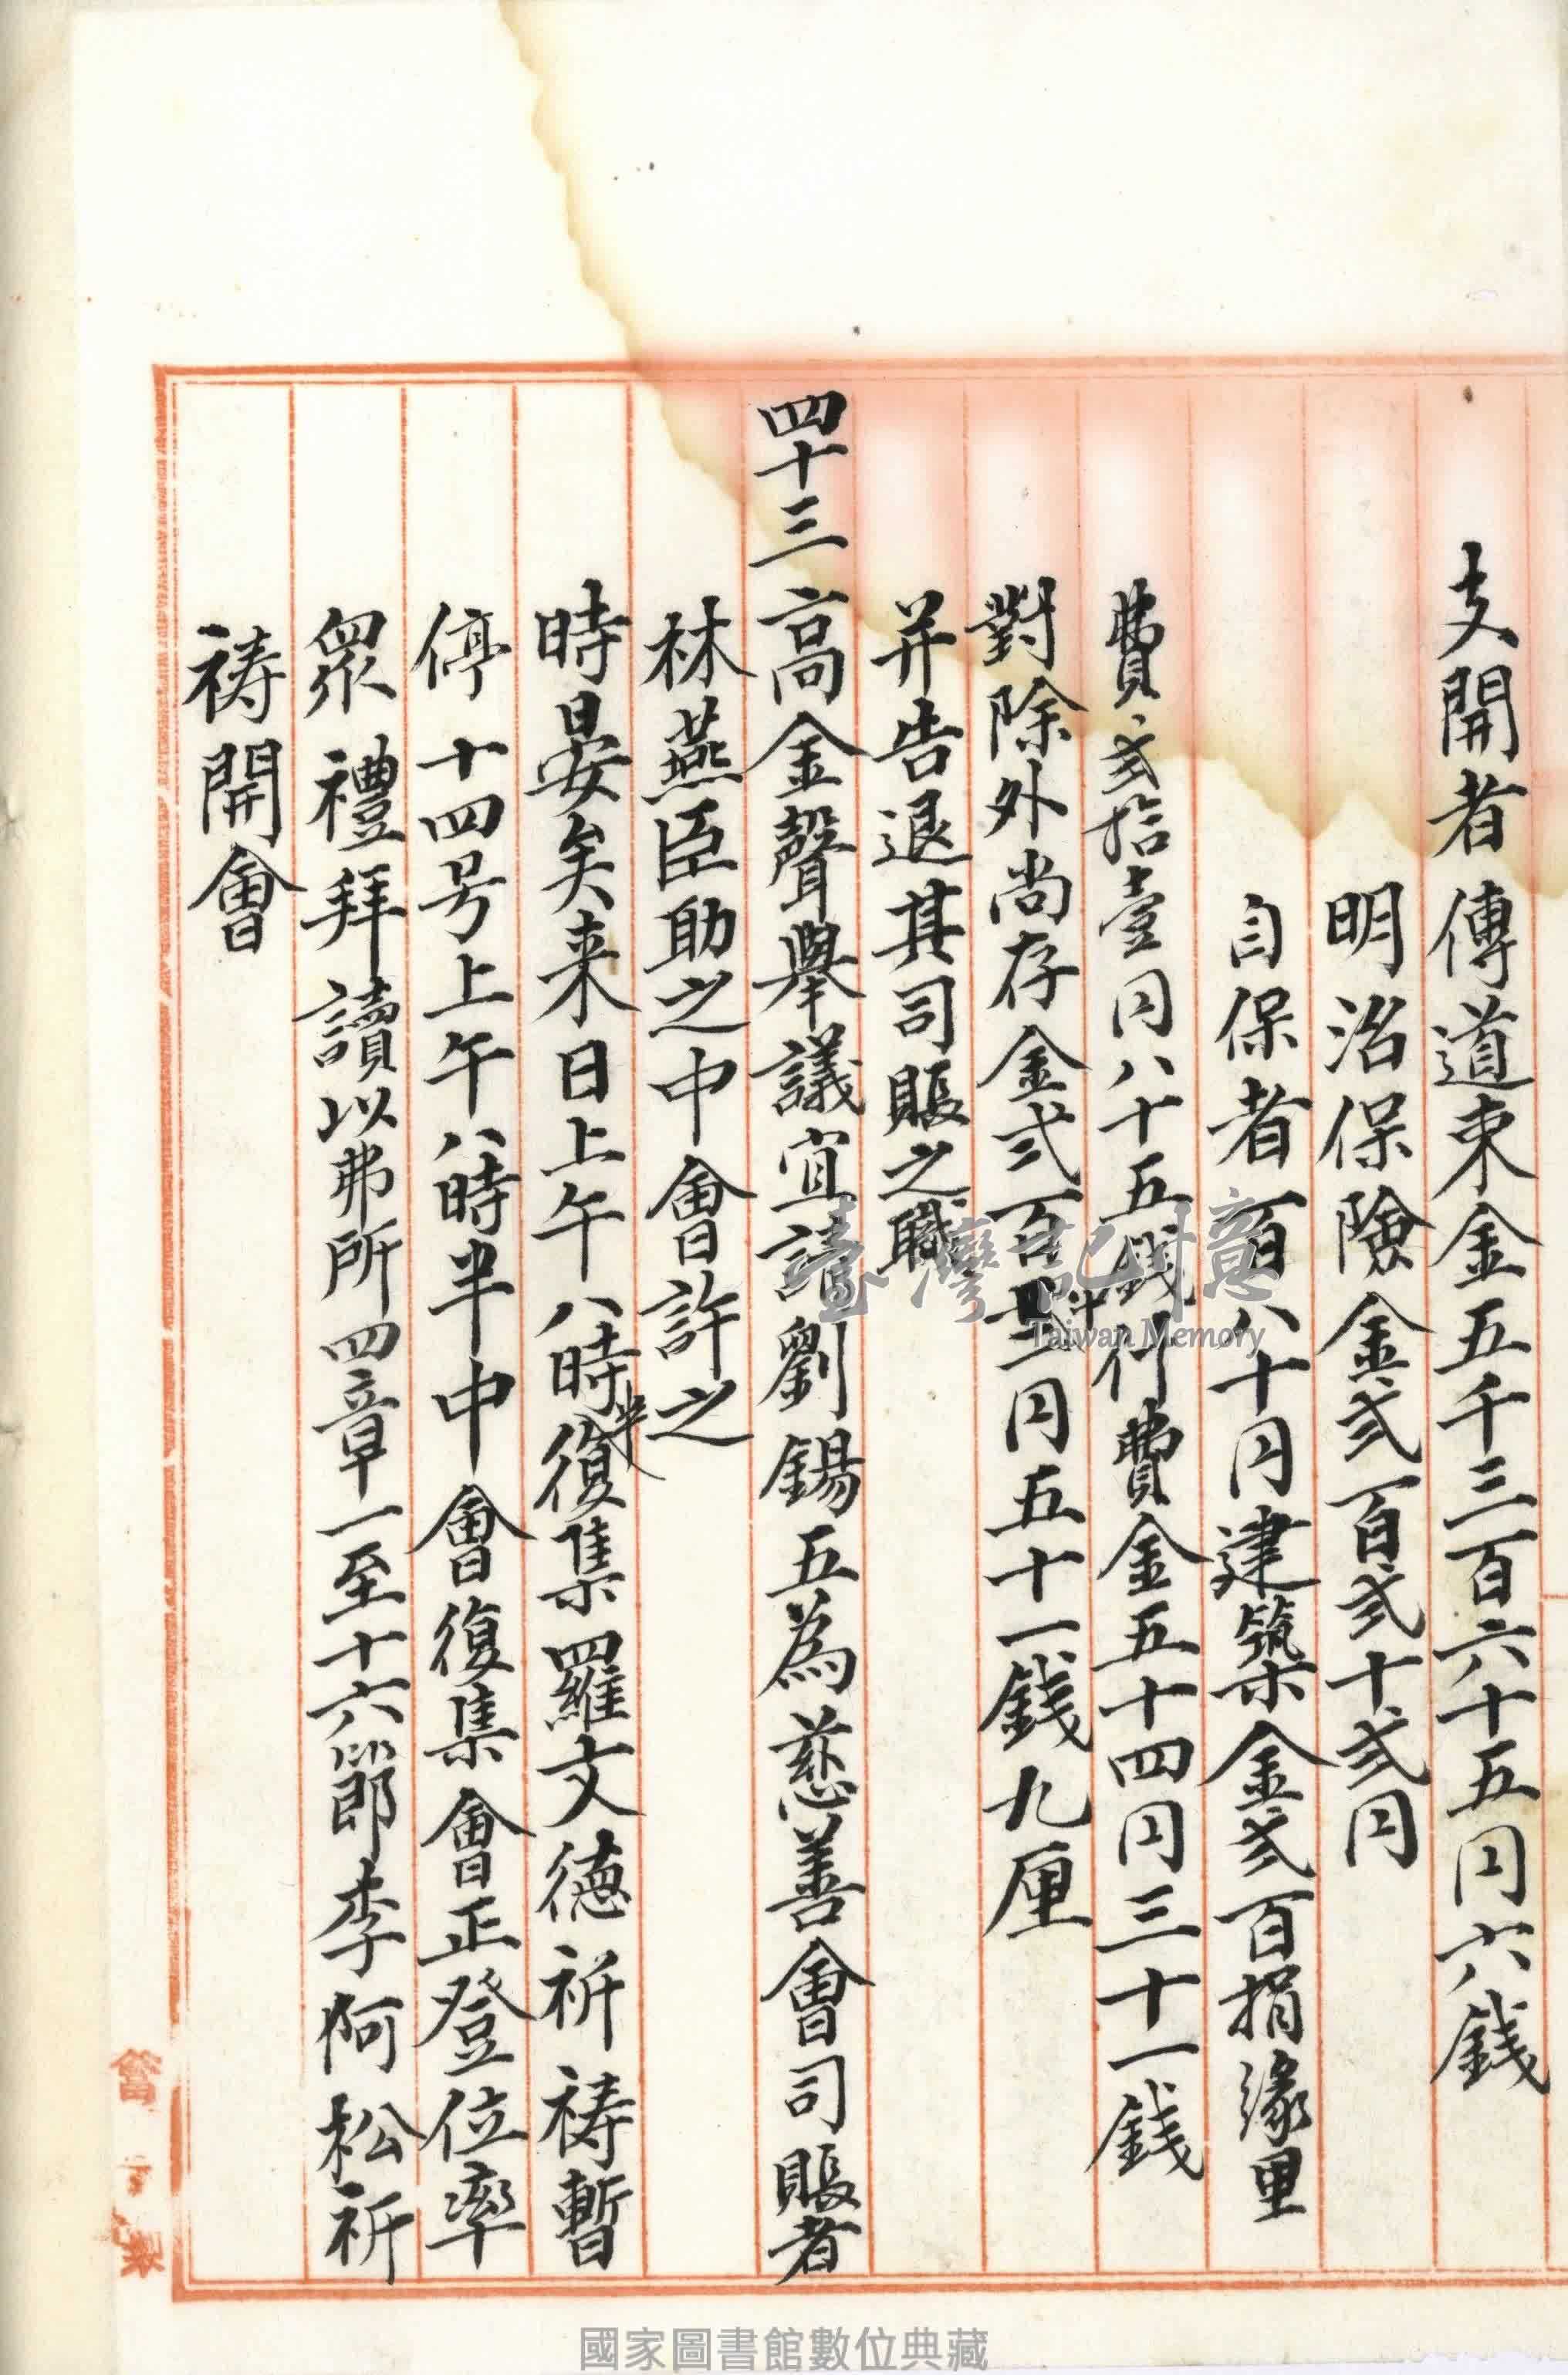 支開者傳道束金五千三百六十五円六六錢
明治保險金弐百弐十弐円
自保者百八十円建築金弐百捐緣里
費弐拾壹円八十五錢行費金五十四円三十一錢
對除外尚存金弐百 円五十一錢九厘
并告退其司賬之職
四十三高金聲舉議宜請劉錫五為慈善會司賬者
林燕臣助之中會許之
時晏矣来日上午八時半復集羅文德祈禱暫
停十四号上午八時半中會復集會正登位率
眾禮拜讀以弗所四章一至十六節李阿松祈
禱開會
臺灣記憶
Taiwan Memory
國家圖書館數位典藏